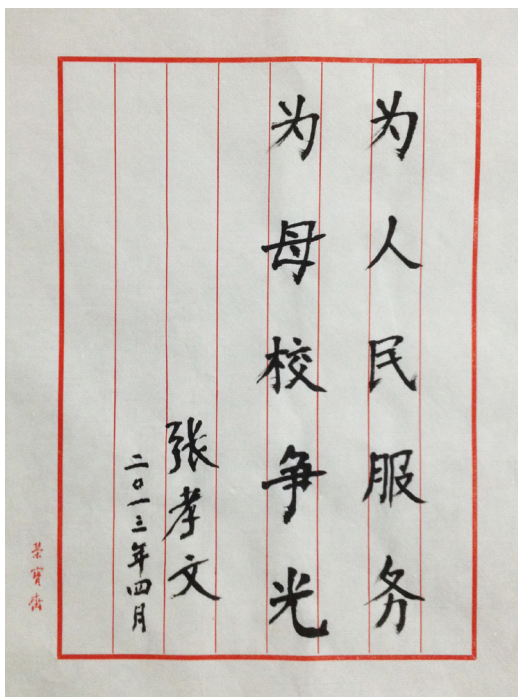 为人民服务
为母校争光
張孝文
二〇一三年四月
荣寳斋